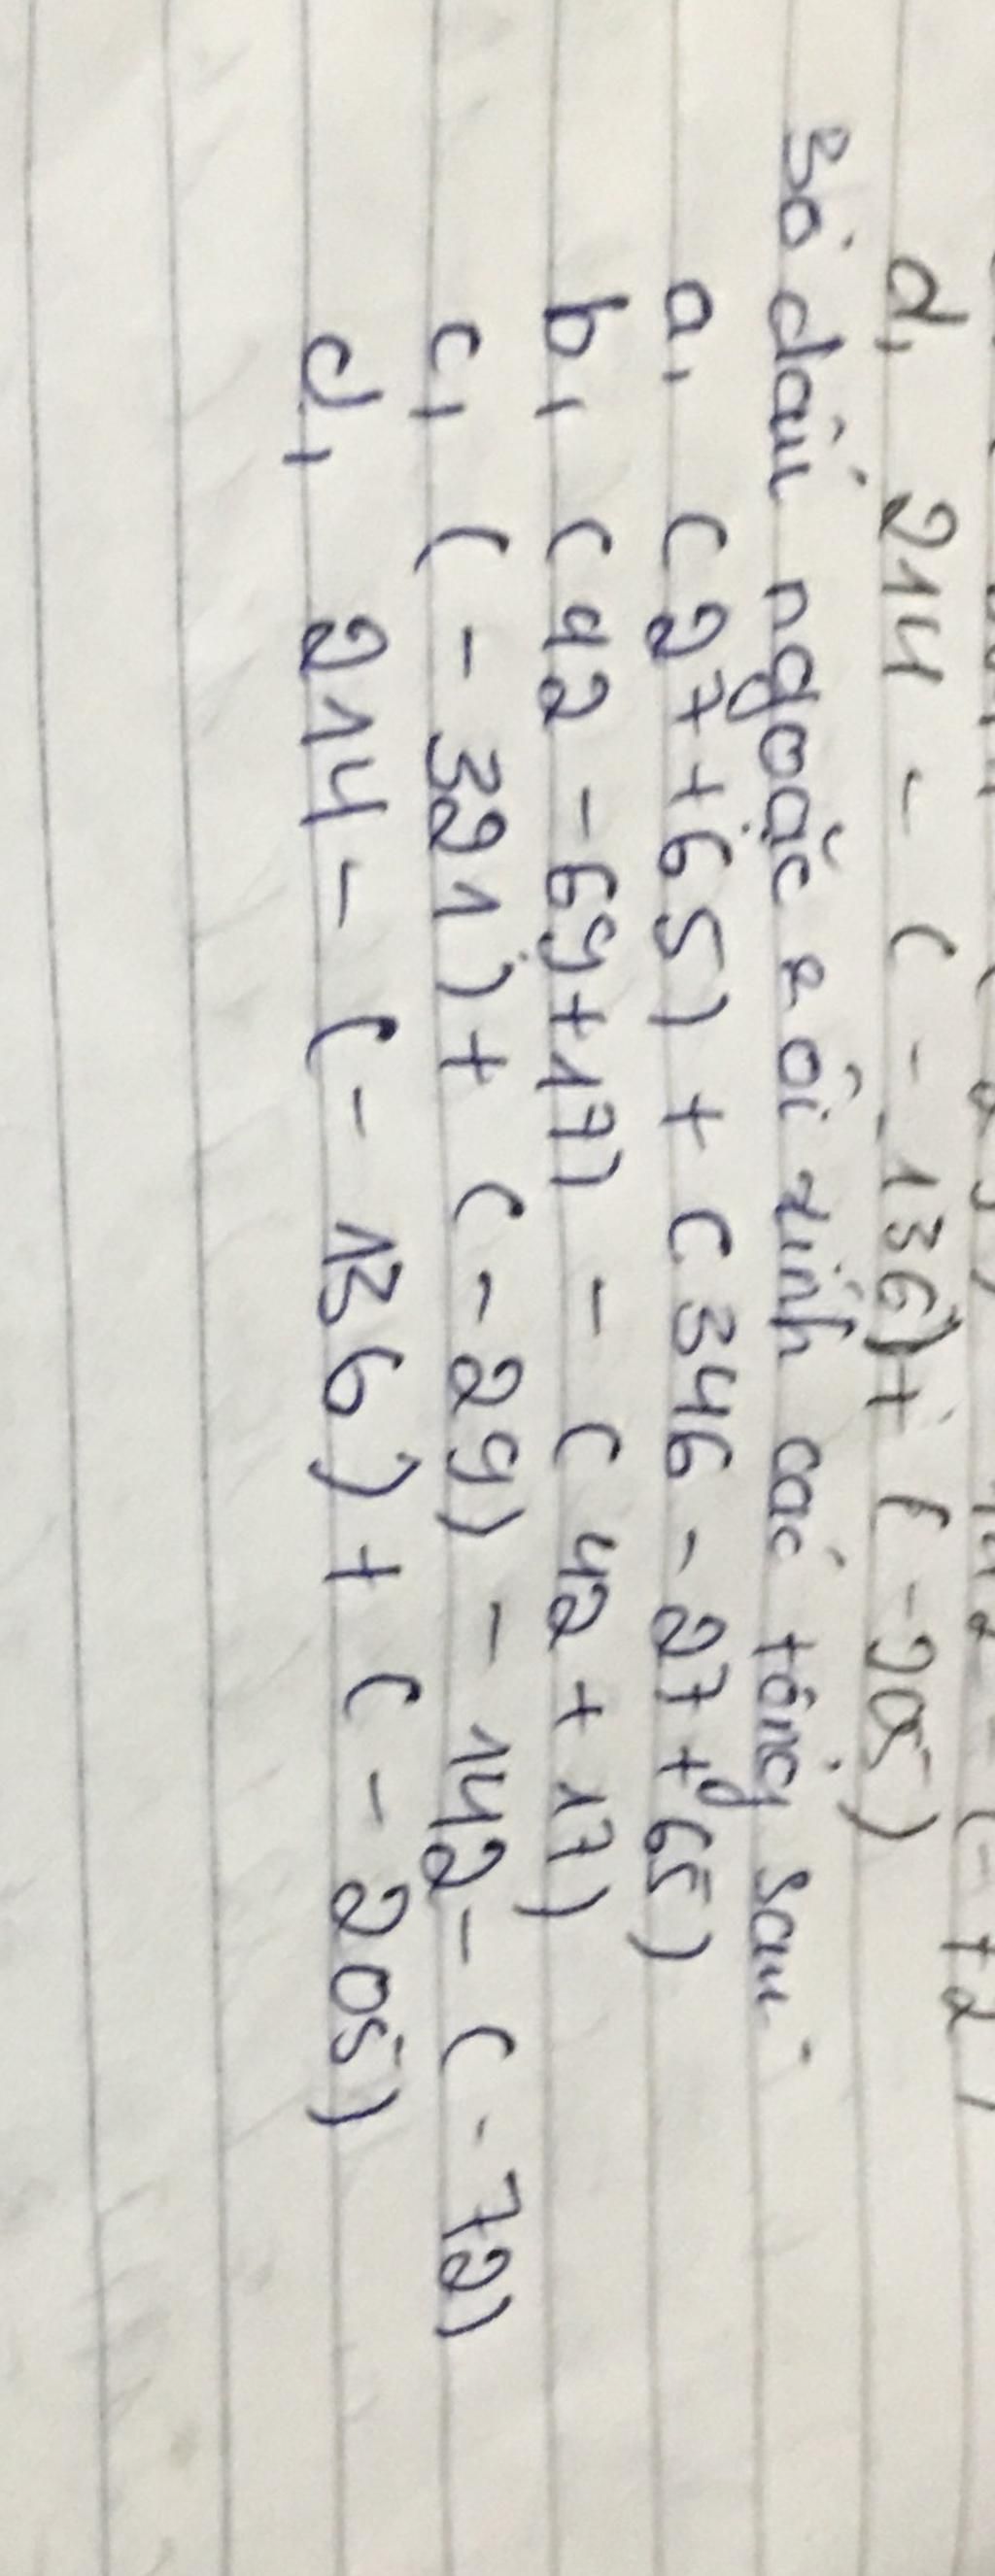 d, 214 - (-136) + (-205)
Bỏ dấu ngoặc rồi tính các tổng sau
a, (27+65) + (346 - 27+65)
b, (42 - 69+17) - (42 + 17)
c, (-321) + (-29) - 142 - (-72)
d, 214 - (-136) + (-205)